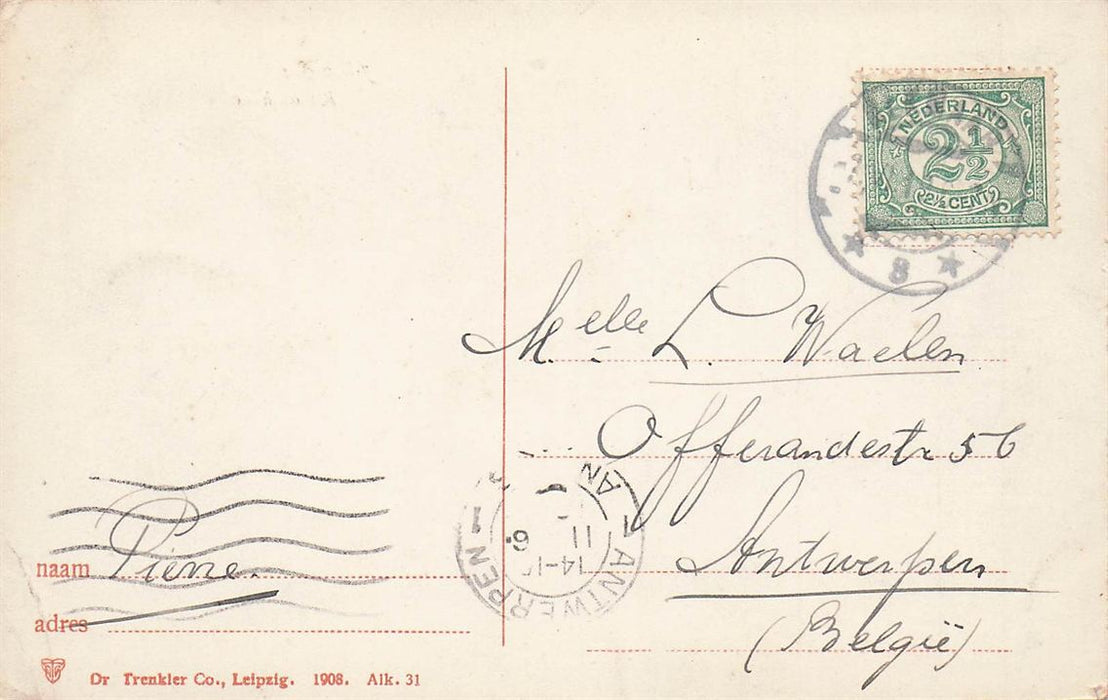 NEDERLAND
2½
2½ CENT
8
Melle L. Waelen
Offerandestr 56
Antwerpen
(België)
1 ANTWERPEN 1
AN
14-1
11
naam Pierre.
adres
Dr Trenkler Co., Leipzig. 1908. Alk. 31